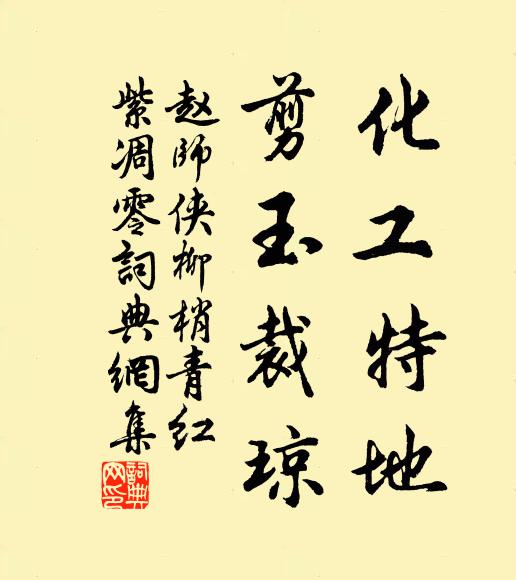 化工特地
剪玉裁琼
赵师侠柳梢青红
紫凋零詞典網集
詞典
网印